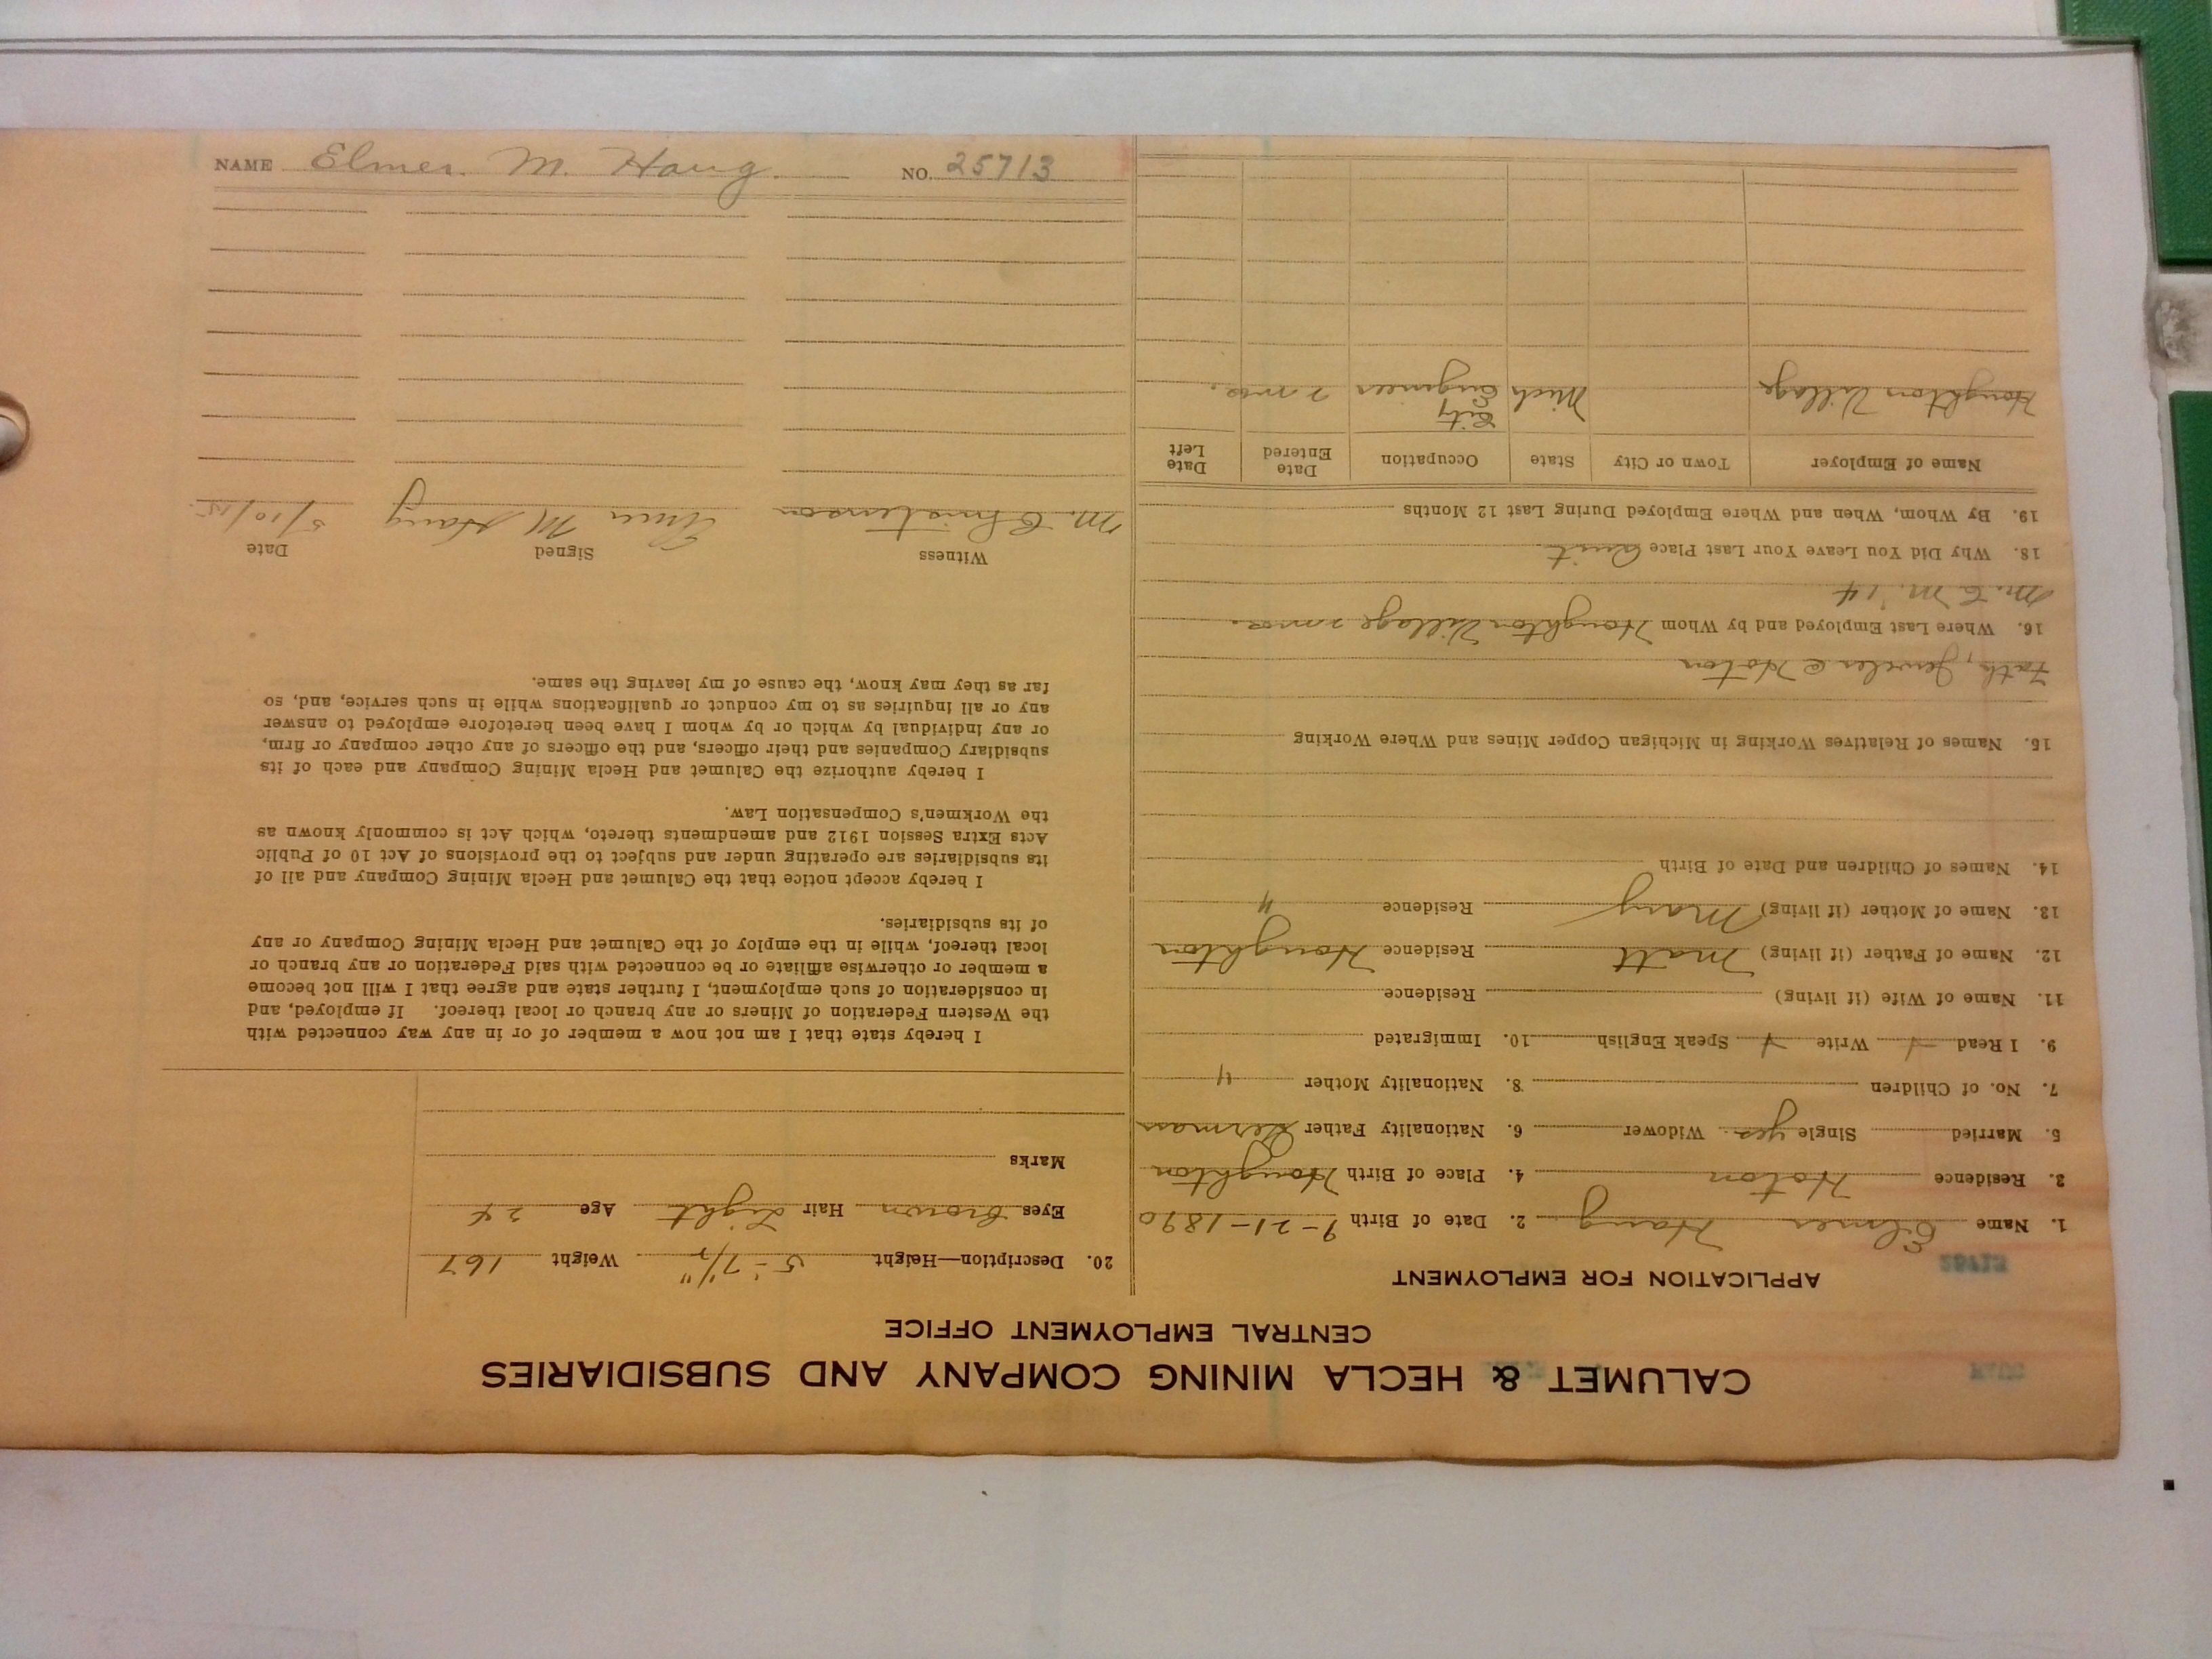 NAME Elmer. M. Haug. NO. 25713
CALUMET & HECLA MINING COMPANY AND SUBSIDIARIES
CENTRAL EMPLOYMENT OFFICE
APPLICATION FOR EMPLOYMENT
25713
1. Name Elmer Haug 2. Date of Birth 9-21-1890
3. Residence Hoton 4. Place of Birth Houghton
5. Married Single yes Widower 6. Nationality Father German
7. No. of Children 8. Nationality Mother "
9. I Read + Write + Speak English 10. Immigrated
11. Name of Wife (if living) Residence
12. Name of Father (if living) Matt Residence Houghton
13. Name of Mother (if living) Mary Residence "
14. Names of Children and Date of Birth
15. Names of Relatives Working in Michigan Copper Mines and Where Working
Fath, Jeweler @ Hoton
16. Where Last Employed and by Whom Houghton Village 2 mos.
M. C. M. '14
18. Why Did You Leave Your Last Place Quit
19. By Whom, When and Where Employed During Last 12 Months
Name of Employer Town or City State Occupation Date Entered Date Left
Houghton Village Mich City Engineer 2 mos.
20. Description—Height 5'-7½" Weight 167
Eyes Brown Hair Light Age 24
Marks
I hereby state that I am not now a member of or in any way connected with
the Western Federation of Miners or any branch or local thereof. If employed, and
in consideration of such employment, I further state and agree that I will not become
a member or otherwise affiliate or be connected with said Federation or any branch or
local thereof, while in the employ of the Calumet and Hecla Mining Company or any
of its subsidiaries.
I hereby accept notice that the Calumet and Hecla Mining Company and all of
its subsidiaries are operating under and subject to the provisions of Act 10 of Public
Acts Extra Session 1912 and amendments thereto, which Act is commonly known as
the Workmen's Compensation Law.
I hereby authorize the Calumet and Hecla Mining Company and each of its
subsidiary Companies and their officers, and the officers of any other company or firm,
or any individual by which or by whom I have been heretofore employed to answer
any or all inquiries as to my conduct or qualifications while in such service, and, so
far as they may know, the cause of my leaving the same.
Witness Signed Date
M. C. Christenson Elmer M Haug 5/10/15.